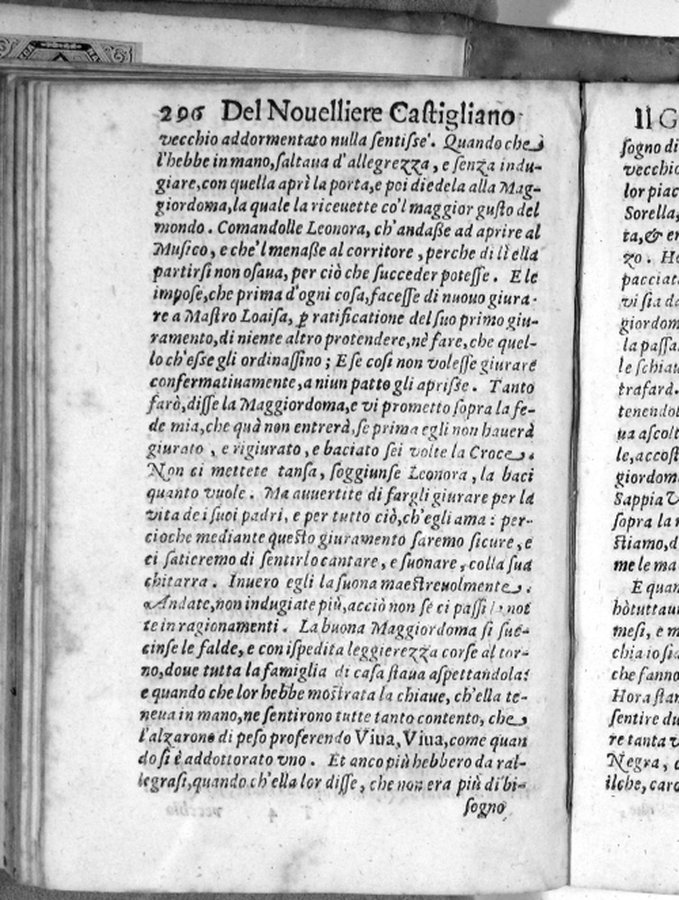 296 Del Nouelliere Castigliano
vecchio addormentato nulla ſentiſſe'. Quando che
l'hebbe in mano, ſaltaua d'allegrezza, e ſenza indu-
giare, con quella aprì la porta, e poi diedela alla Mag-
giordoma, la quale la riceuette co'l maggior guſto del
mondo. Comandolle Leonora, ch'andaße ad aprire al
Muſico, e che'l menaße al corritore, perche di lì ella
partirſi non oſaua, per ciò che ſucceder poteſſe. E le
impoſe, che prima d'ogni coſa, faceſſe di nuouo giura-
re a Maſtro Loaiſa, ꝑ ratificatione del ſuo primo giu-
ramento, di niente altro protendere, nè fare, che quel-
lo ch'eſse gli ordinaſſino; E ſe coſi non voleſſe giurare
confermatiuamente, a niun patto gli apriſſe. Tanto
farò, diſſe la Maggiordoma, e vi prometto ſopra la fe-
de mia, che quà non entrerà, ſe prima egli non hauerà
giurato, e rigiurato, e baciato ſei volte la Croce.
Non ci mettete tanſa, ſoggiunſe Leonora, la baci
quanto vuole. Ma auuertite di fargli giurare per la
vita de i ſuoi padri, e per tutto ciò, ch'egli ama: per-
cioche mediante queſto giuramento ſaremo ſicure, e
ci ſatieremo di ſentirlo cantare, e ſuonare, colla ſua
chitarra. Inuero egli la ſuona maeſtreuolmente.
Andate, non indugiate più, acciò non ſe ci paſſi la not
te in ragionamenti. La buona Maggiordoma ſi ſuc-
cinſe le falde, e con iſpedita leggierezza corſe al tor-
no, doue tutta la famiglia di caſa ſtaua aſpettandola:
e quando che lor hebbe moſtrata la chiaue, ch'ella te-
neua in mano, ne ſentirono tutte tanto contento, che
l'alzarono di peſo proferendo Viua, Viua, come quan
do ſi è addottorato vno. Et anco più hebbero da ral-
legraſi, quando ch'ella lor diſſe, che non era più di bi-
ſogno
Il G
ſogno di
vecchio
lor piac
Sorella,
ta, & en
zo. He
pacciat
vi ſia da
giordom
la paſſa
le ſchiau
trafard.
tenendol
ua aſcolt
le, accoſt
giordom
Sappia V
ſopra la
ſtiamo, d
me le ma
E quan
hòtuttaui
meſi, e m
chia io ſia
che fanno
Hora ſtan
ſentire du
re tanta v
Negra,
ilche, card